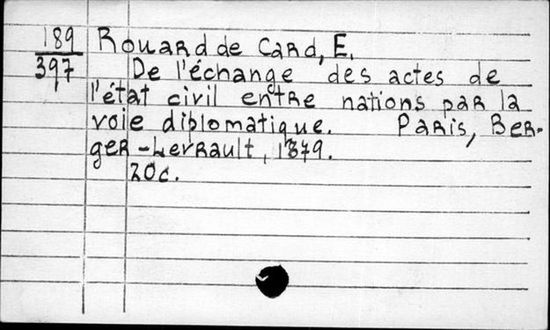 189 Rouard de Card, E.
397 De l'échange des actes de
l'état civil entre nations par la
voie diplomatique. Paris, Ber-
ger-Levrault, 1879.
20c.